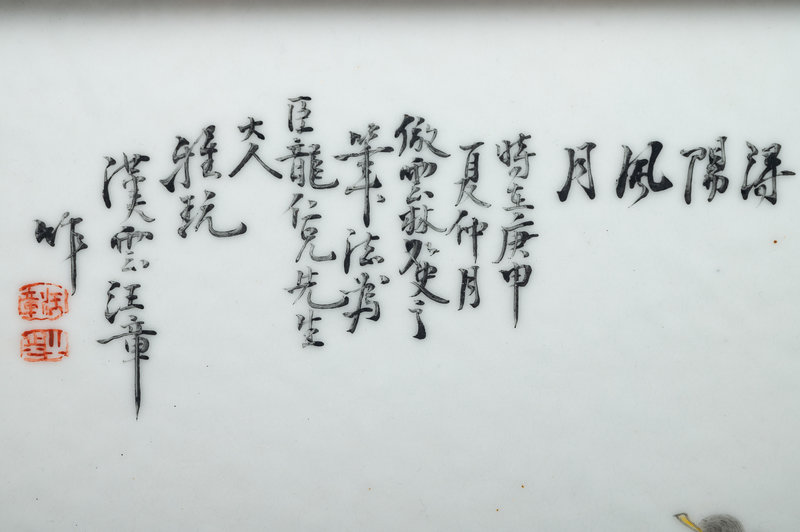 潯陽風月
時在庚申
夏仲月
倣雲林女史之
筆法為
臣龍仁兄先生
大人
雅玩
漢雲汪章
作
汪章